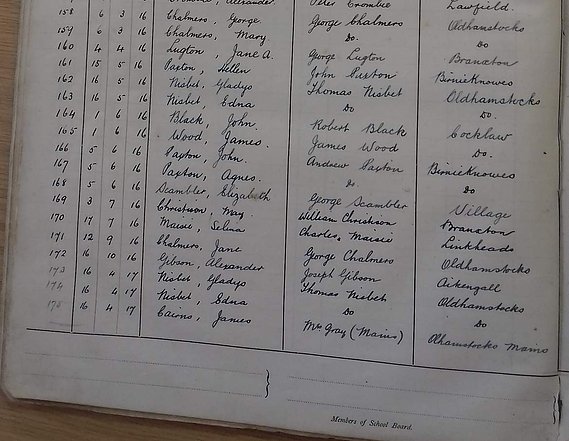 Peter Crombie Lawfield.
158 6 3 16 Chalmers, George. George Chalmers Oldhamstocks
159 6 3 16 Chalmers, Mary. Do. Do
160 4 4 16 Lugton, Jane A. George Lugton Branxton
161 15 5 16 Paxton, Hellen John Paxton BirnieKnowes
162 16 5 16 Nisbet, Gladys Thomas Nisbet Oldhamstocks
163 16 5 16 Nisbet, Edna Do Do.
164 1 6 16 Black, John. Robert Black Cocklaw
165 1 6 16 Wood, James. James Wood Do.
166 5 6 16 Paxton, John. Andrew Paxton BirnieKnowes
167 5 6 16 Paxton, Agnes. Do Do
168 5 6 16 Scambler, Elizabeth George Scambler Village
169 3 7 16 Christison, May. William Christison Branxton
170 17 7 16 Maisie, Selina Charles Maisie Linkheads
171 12 9 16 Chalmers, Jane George Chalmers Oldhamstocks
172 16 10 16 Gibson, Alexander Joseph Gibson Aikengall
173 16 4 17 Nisbet, Gladys Thomas Nisbet Oldhamstocks
174 16 4 17 Nisbet, Edna Do Do
175 16 4 17 Cairns, James Mr Gray (Mains) Olhamstocks Mains
Members of School Board.